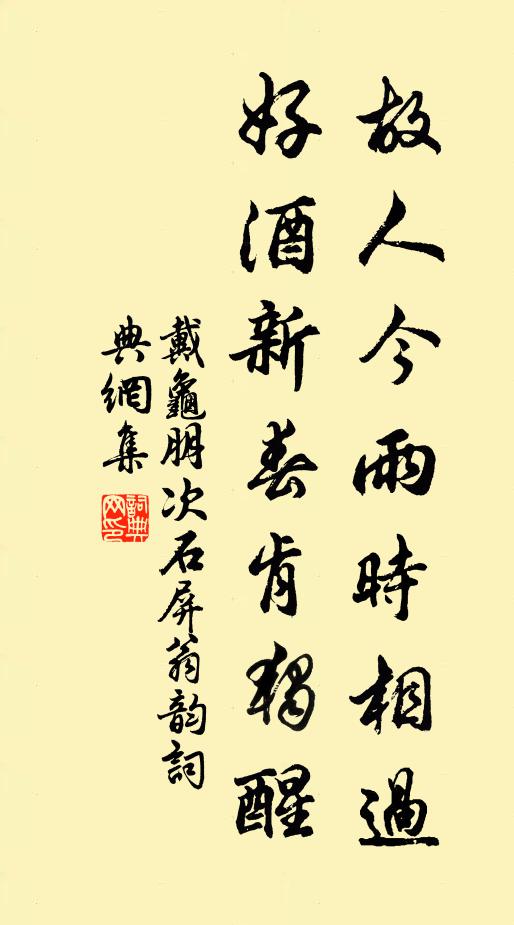 故人今雨時相過
好酒新春肯獨醒
戴龜朋次石屏翁韵詞
典網集
詞典网印